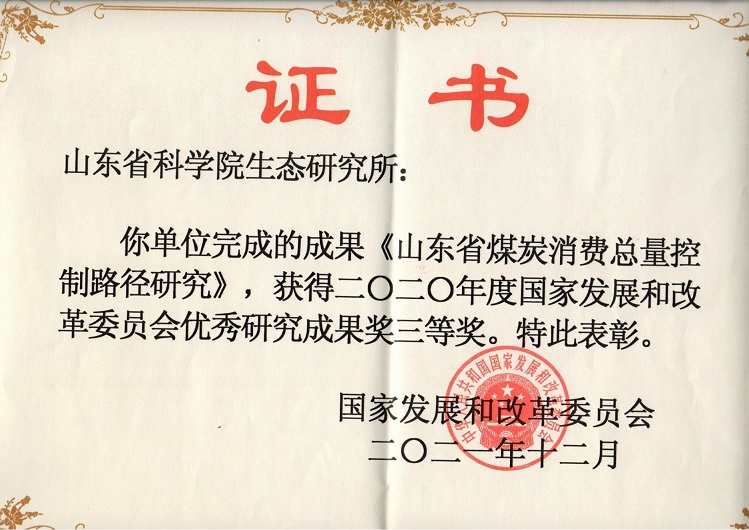 证书
山东省科学院生态研究所：
你单位完成的成果《山东省煤炭消费总量控
制路径研究》，获得二〇二〇年度国家发展和改
革委员会优秀研究成果奖三等奖。特此表彰。
中华人民共和国国家发展和改革委员会
国家发展和改革委员会
二〇二一年十二月